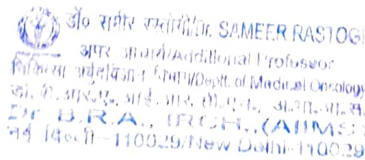 डॉ० समीर रस्तोगी/Dr. SAMEER RASTOGI
अपर आचार्य/Additional Professor
चिकित्सा अर्बुदविज्ञान विभाग/Deptt. of Medical Oncology
डॉ. बी. आर. ए., आई. आर. सी. एच., अ.भा.आ.सं.
Dr B.R.A., IRCH., (AIIMS)
नई दिल्ली-110029/New Delhi-110029